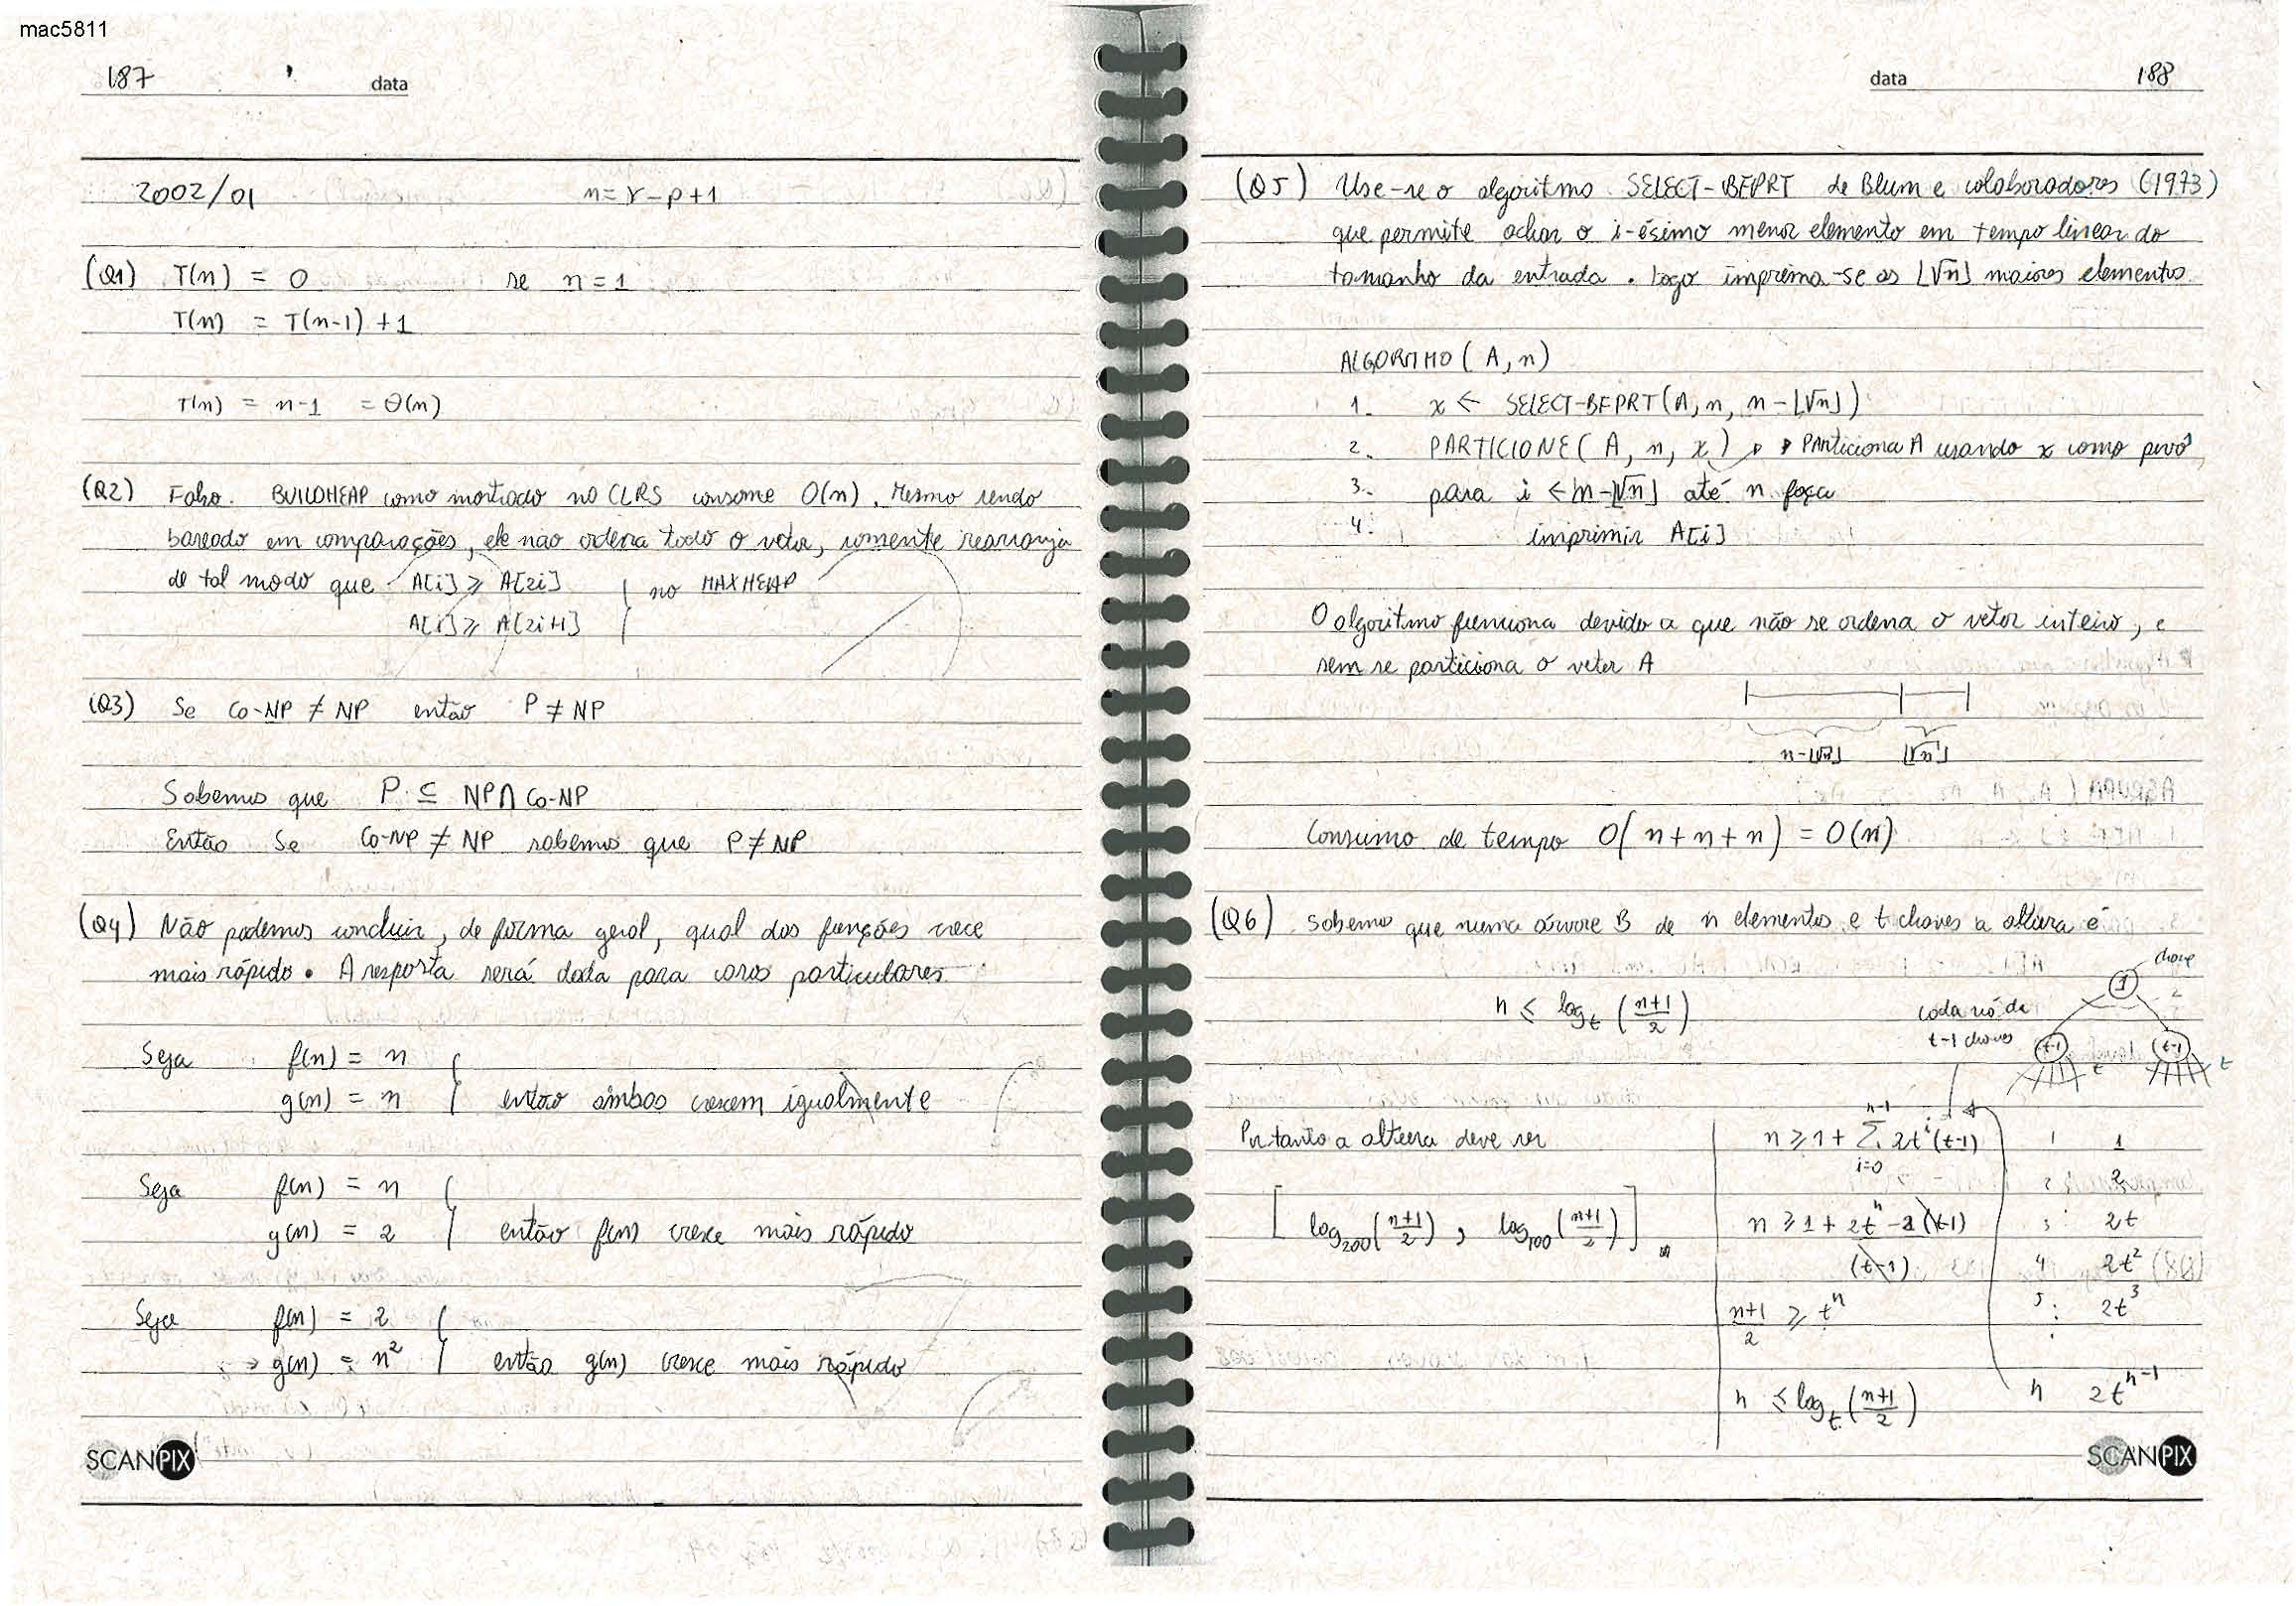 mac5811
187 data
2002/01 n=r-p+1
(Q1) T(n) = 0 se n=1
T(n) = T(n-1) +1
T(n) = n-1 = Θ(n)
(Q2) Falso. BUILDHEAP como mostrado no CLRS consome O(n). Mesmo sendo
baseado em comparações, ele não ordena todo o vetor, somente rearranja
de tal modo que A[i] ≥ A[2i] } no MAXHEAP
A[i] ≥ A[2i+1]
(Q3) Se Co-NP ≠ NP então P ≠ NP
Sabemos que P ⊆ NP∩Co-NP
Então Se Co-NP ≠ NP sabemos que P≠NP
(Q4) Não podemos concluir, de forma geral, qual das funções cresce
mais rápido. A resposta será dada para casos particulares.
Seja f(n) = n
g(n) = n } então ambos crescem igualmente
Seja f(n) = n
g(n) = 2 } então f(n) cresce mais rápido
Seja f(n) = 2
→ g(n) = n² } então g(n) cresce mais rápido
SCANPIX
data 188
(Q5) Use-se o algoritmo SELECT-BFPRT de Blum e colaboradores (1973)
que permite achar o i-ésimo menor elemento em tempo linear do
tamanho da entrada. Logo imprima-se os ⌊√n⌋ maiores elementos.
ALGORITMO (A, n)
1. x ← SELECT-BFPRT(A, n, n-⌊√n⌋)
2. PARTICIONE(A, n, x) ▹ ▹ Particiona A usando x como pivô
3. para i ← n-⌊√n⌋ até n faça
4. imprimir A[i]
O algoritmo funciona devido a que não se ordena o vetor inteiro, e
sem se particiona o vetor A
n-⌊√n⌋ ⌊√n⌋
Consumo de tempo O(n+n+n) = O(n)
(Q6) Sabemos que numa árvore B de n elementos e t chaves a altura é
h ≤ log_t ((n+1)/2)
chave
1
cada nó de
t-1 chaves
t-1 t t-1 t
Portanto a altura deve ser
[ log₂₀₀((n+1)/2) , log₁₀₀((n+1)/2) ]
n ≥ 1 + Σ_{i=0}^{h-1} 2t^i (t-1)
n ≥ 1 + 2t^h - 2 (t-1)
(t-1)
(n+1)/2 ≥ t^h
h ≤ log_t ((n+1)/2)
1 1
2 2
3 2t
4 2t²
5 2t³
⋮
h 2t^{h-1}
SCANPIX